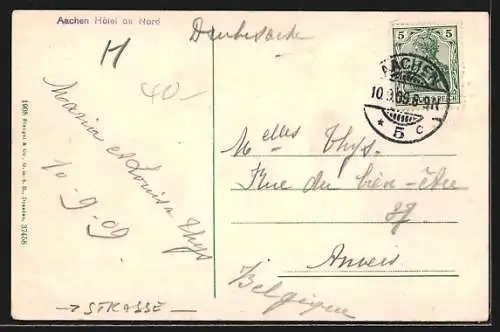 Aachen Hôtel du Nord
H
40.-
Maria et Louisa Thys
10-9-09
1908 Stengel & Co., G. m. b. H., Dresden, 37458
→ STRASSE ←
5 5
AACHEN
10.9.09.8-9N
* 5 c
Melles Thys.
Rue du bien-être
Anvers
Belgique